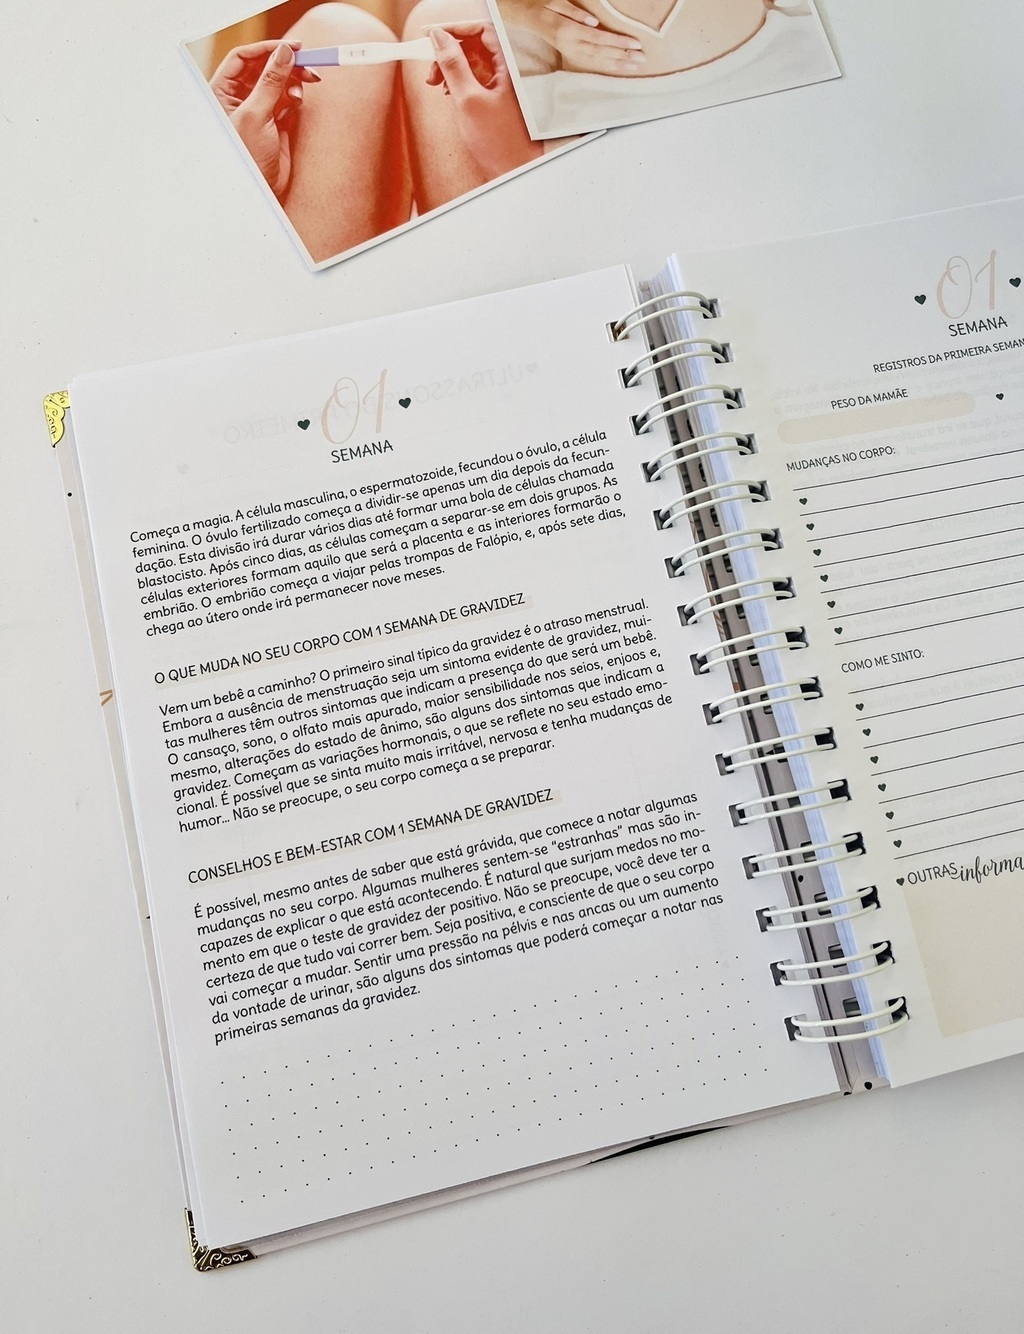 01
SEMANA
Começa a magia. A célula masculina, o espermatozoide, fecundou o óvulo, a célula
feminina. O óvulo fertilizado começa a dividir-se apenas um dia depois da fecun-
dação. Esta divisão irá durar vários dias até formar uma bola de células chamada
blastocisto. Após cinco dias, as células começam a separar-se em dois grupos. As
células exteriores formam aquilo que será a placenta e as interiores formarão o
embrião. O embrião começa a viajar pelas trompas de Falópio, e, após sete dias,
chega ao útero onde irá permanecer nove meses.
O QUE MUDA NO SEU CORPO COM 1 SEMANA DE GRAVIDEZ
Vem um bebê a caminho? O primeiro sinal típico da gravidez é o atraso menstrual.
Embora a ausência de menstruação seja um sintoma evidente de gravidez, mui-
tas mulheres têm outros sintomas que indicam a presença do que será um bebê.
O cansaço, sono, o olfato mais apurado, maior sensibilidade nos seios, enjoos e,
mesmo, alterações do estado de ânimo, são alguns dos sintomas que indicam a
gravidez. Começam as variações hormonais, o que se reflete no seu estado emo-
cional. É possível que se sinta muito mais irritável, nervosa e tenha mudanças de
humor... Não se preocupe, o seu corpo começa a se preparar.
CONSELHOS E BEM-ESTAR COM 1 SEMANA DE GRAVIDEZ
É possível, mesmo antes de saber que está grávida, que comece a notar algumas
mudanças no seu corpo. Algumas mulheres sentem-se "estranhas" mas são in-
capazes de explicar o que está acontecendo. É natural que surjam medos no mo-
mento em que o teste de gravidez der positivo. Não se preocupe, você deve ter a
certeza de que tudo vai correr bem. Seja positiva, e consciente de que o seu corpo
vai começar a mudar. Sentir uma pressão na pélvis e nas ancas ou um aumento
da vontade de urinar, são alguns dos sintomas que poderá começar a notar nas
primeiras semanas da gravidez.
01
SEMANA
REGISTROS DA PRIMEIRA
PESO DA MAMÃE
MUDANÇAS NO CORPO:
COMO ME SINTO:
OUTRAS